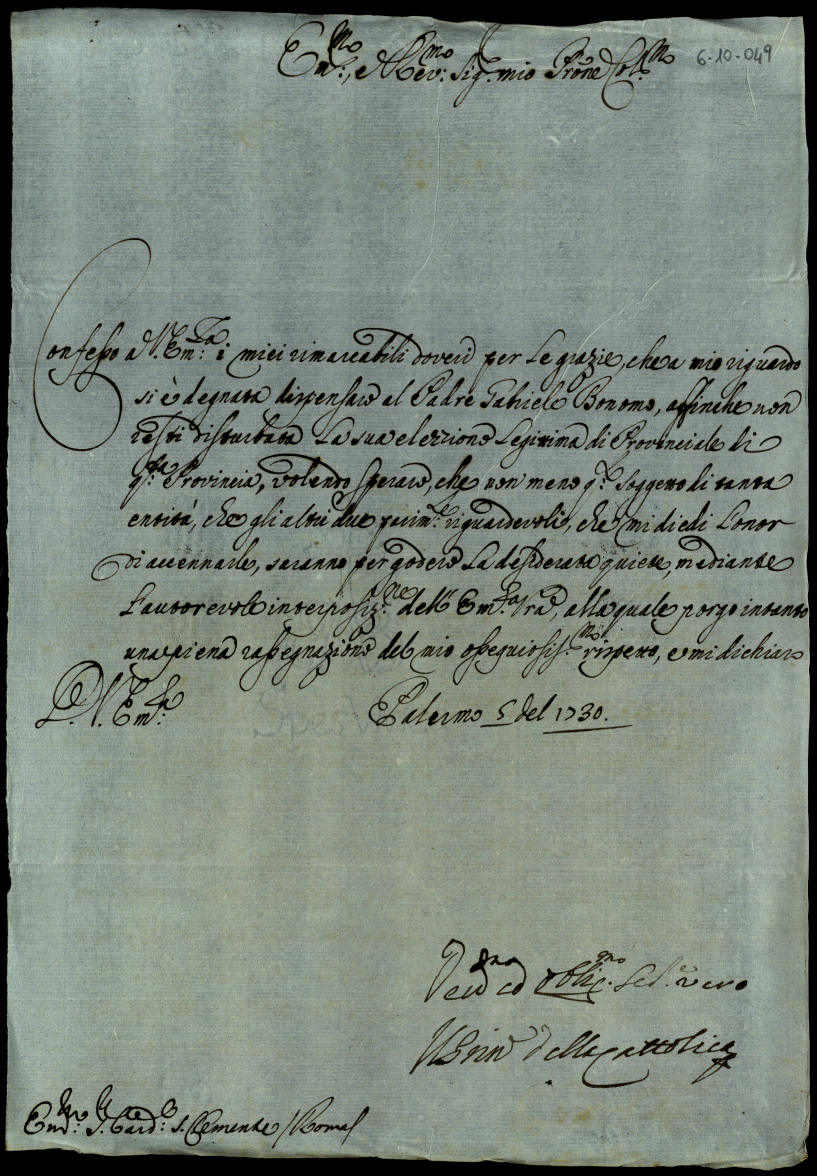 Em.mo, e Rev.mo Sig.r mio Prōne Col.mo
6-10-049
Confesso a V. Em.za i miei rimarcabili doveri per le grazie, che a mio riguardo
si è degnata dispensare al Padre Gabriele Bonomo, affinche non
resti disturbata la sua elezzione legitima di Provinciale di
q.sta Provincia, volendo sperare, che non meno q.o soggetto di tanta
entità, che gli altri due parim.te riguardevoli, che mi diedi l'onor
di accennarle, saranno per godere la desiderata quiete, mediante
l'autorevole interposiz.ne dell' Em.za Vr̄a, alla quale porgo intanto
una piena rassegnazione del mio ossequiosiss.mo rispetto, e mi dichiaro
D. V. Em.za
Palermo 5 del 1730.
ed obligmo Ser.e vero
Il Prin della Cattolica
Em.mo S. Card.le S. Clemente / Roma /